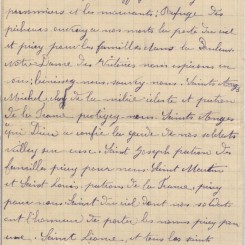 prisonniers et les mourants, Refuge des
pécheurs ouvrez nous la porte du ciel
et priez pour les familles dans la douleur
Notre Dame des Victoires nous espérons en
vous, bénissez nous sauvez nous. Saints Anges
Michel, chef de la milice céleste et patron
de la France protégez nous. Saints Anges
qui Dieu a confié la garde de nos soldats
veillez sur eux. Saint Joseph patron des
familles priez pour nous Saint Martin
et Saint Louis, patrons de la France, priez
pour nous Saints du ciel dont nos soldats
ont l'honneur de porter les noms priez pour
eux. Sainte et tous les saints